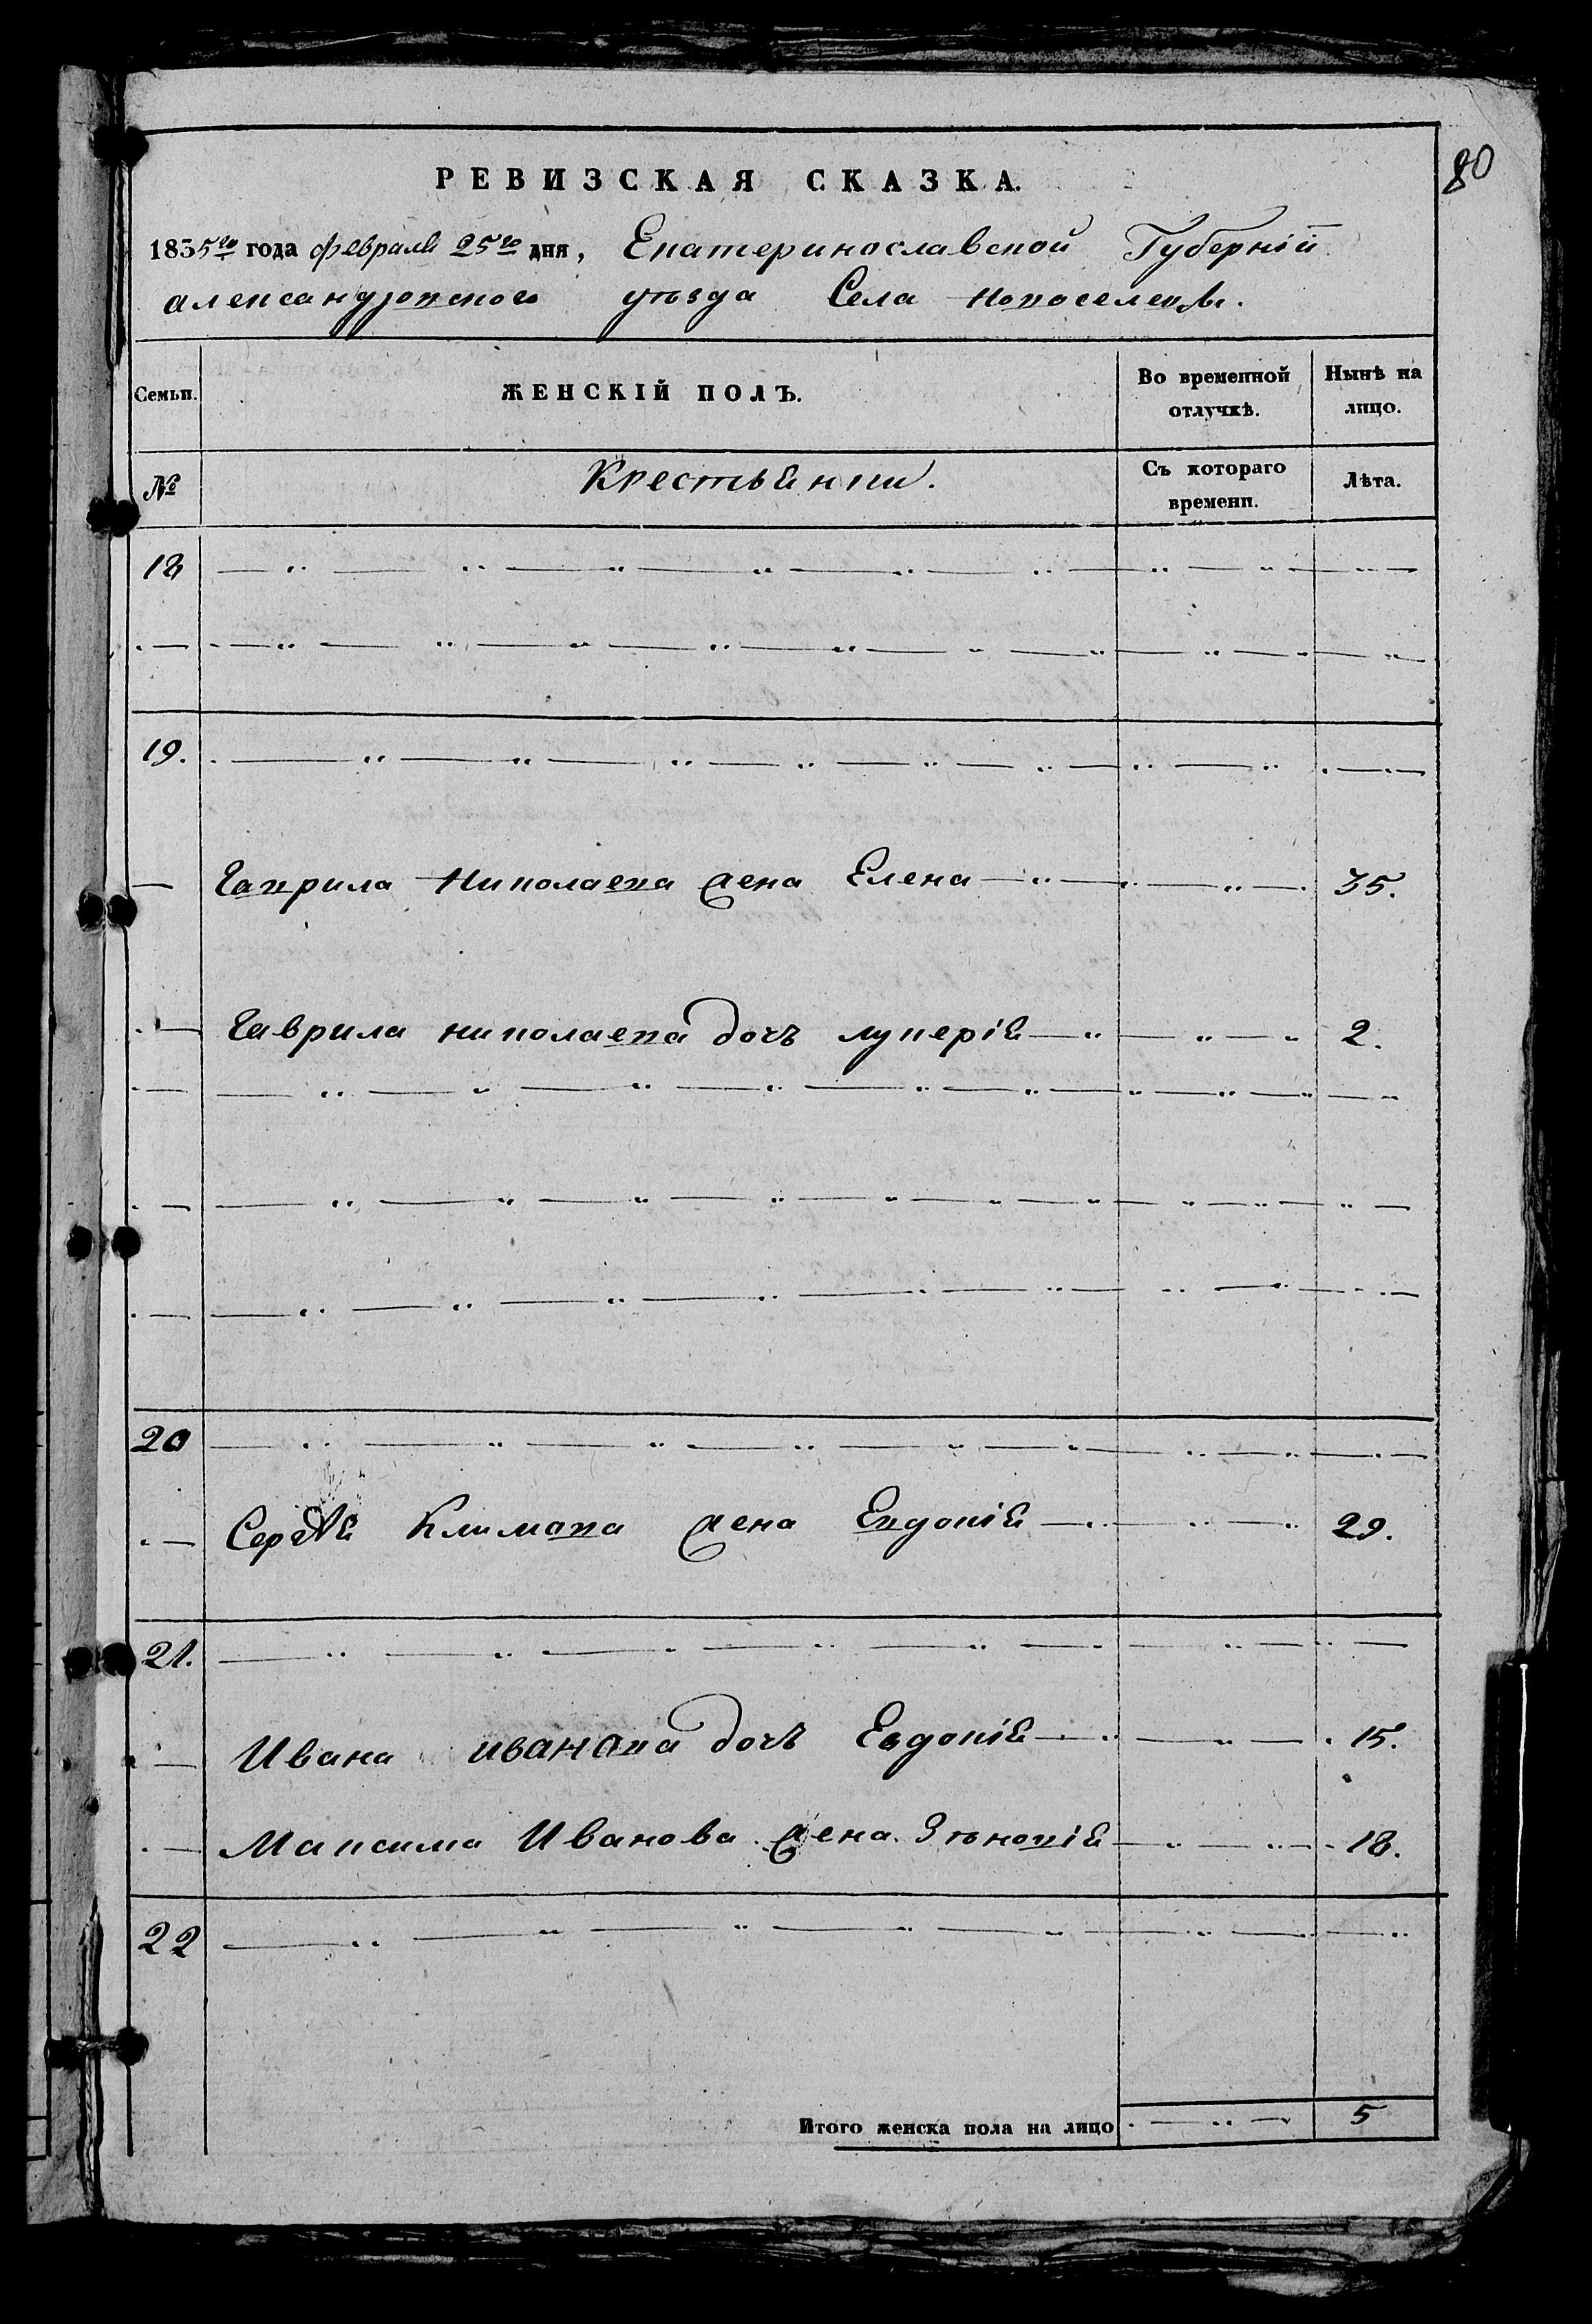 80
РЕВИЗСКАЯ СКАЗКА.
1835го года февраля 25го дня, Екатеринославской Губерніи
александровского уѣзда Села Новоселевки.
Семьи. ЖЕНСКІЙ ПОЛЪ. Во временной отлучкѣ. Нынѣ на лицо.
№ Крестьянки. Съ котораго времени. Лѣта.
18
19.
Гаврила Николаева жена Елена 35.
Гаврила николаева дочь лукерія 2.
20
Сергѣя Климова жена Евдокія 29.
21.
Ивана иванова дочь Евдокія 15.
Максима Иванова жена Зѣновія 18.
22
Итого женска пола на лицо 5